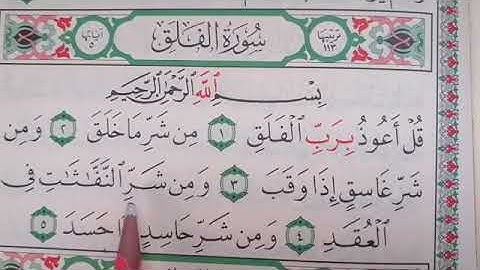 ترتيبها ١١٣
سُورَةُ الفَلَقِ
آياتها ٥
بِسْمِ اللَّهِ الرَّحْمَٰنِ الرَّحِيمِ
قُلْ أَعُوذُ بِرَبِّ الْفَلَقِ ١ مِن شَرِّ مَا خَلَقَ ٢ وَمِن
شَرِّ غَاسِقٍ إِذَا وَقَبَ ٣ وَمِن شَرِّ النَّفَّاثَاتِ فِي
الْعُقَدِ ٤ وَمِن شَرِّ حَاسِدٍ حَسَدَ ٥